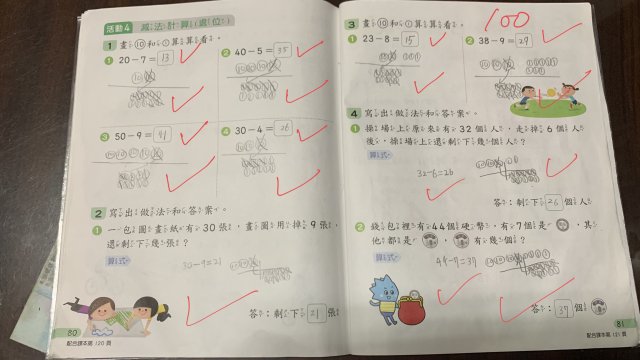 活動4 減法計算(退位)
1 畫⑩和①算算看。
1 20-7=13
2 40-5=35
3 50-9=41
4 30-4=26
2 寫出做法和答案。
1 一包圖畫紙有30張,畫圖用掉9張,
還剩下幾張?
算式
30-9=21
答:剩下21張
80
配合課本第120頁
100
3 畫⑩和①算算看。
1 23-8=15
2 38-9=29
4 寫出做法和答案。
1 操場上原來有32個人,走掉6個人
後,操場上還剩下幾個人?
算式
32-6=26
答:剩下26個人
2 錢包裡有44個硬幣,有7個是 ,其
他都是 , 有幾個?
算式
44-7=37
答:37個
81
配合課本第121頁